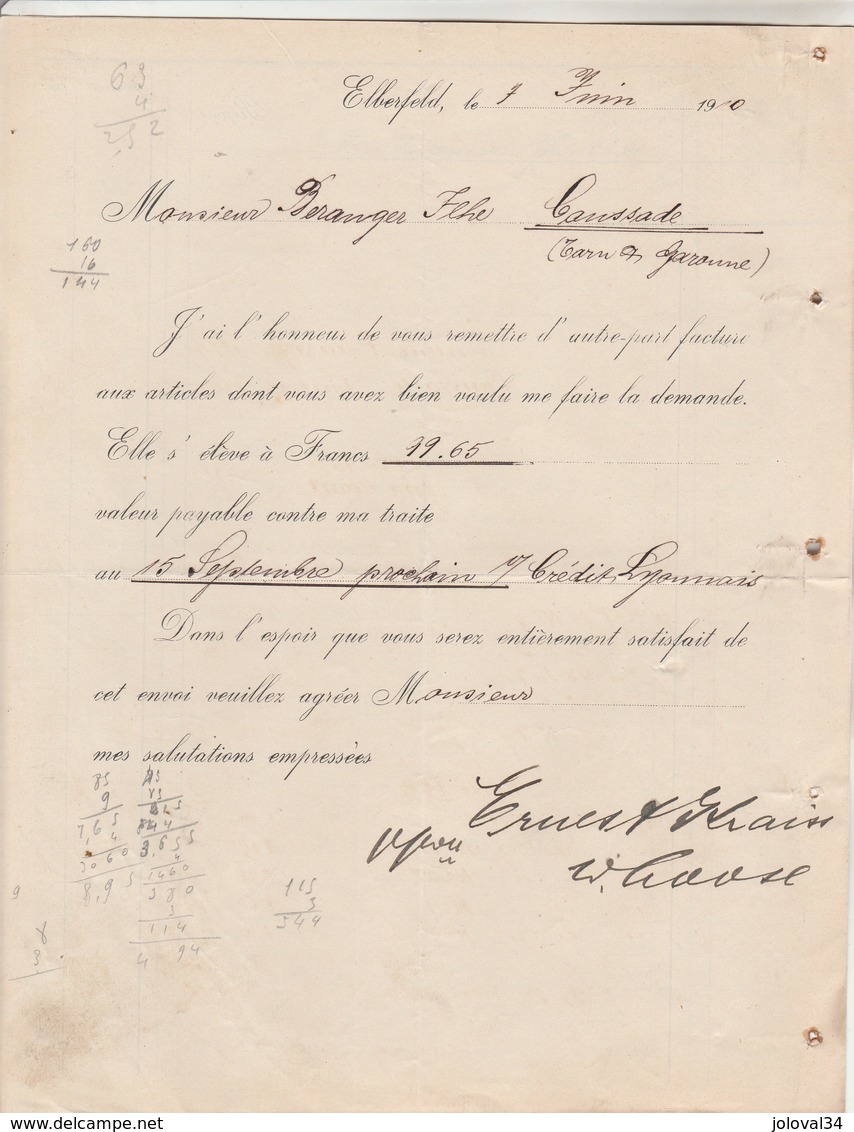 63
4
252
Elberfeld, le 7 Juin 1910
Monsieur Beranger Caussade
160
16
144
(Tarn & Garonne)
J'ai l'honneur de vous remettre d'autre-part facture
aux articles dont vous avez bien voulu me faire la demande.
Elle s'élève à Francs 19.65
valeur payable contre ma traite
au 15 Septembre prochain Crédit Lyonnais
Dans l'espoir que vous serez entièrement satisfait de
cet envoi veuillez agréer Monsieur
mes salutations empressées
85
9
7,65
4
3060
8,95
3,655
4
1460
380
3
114
4 94
115
3
344
Ernest
9
8
3
www.delcampe.net
joloval34